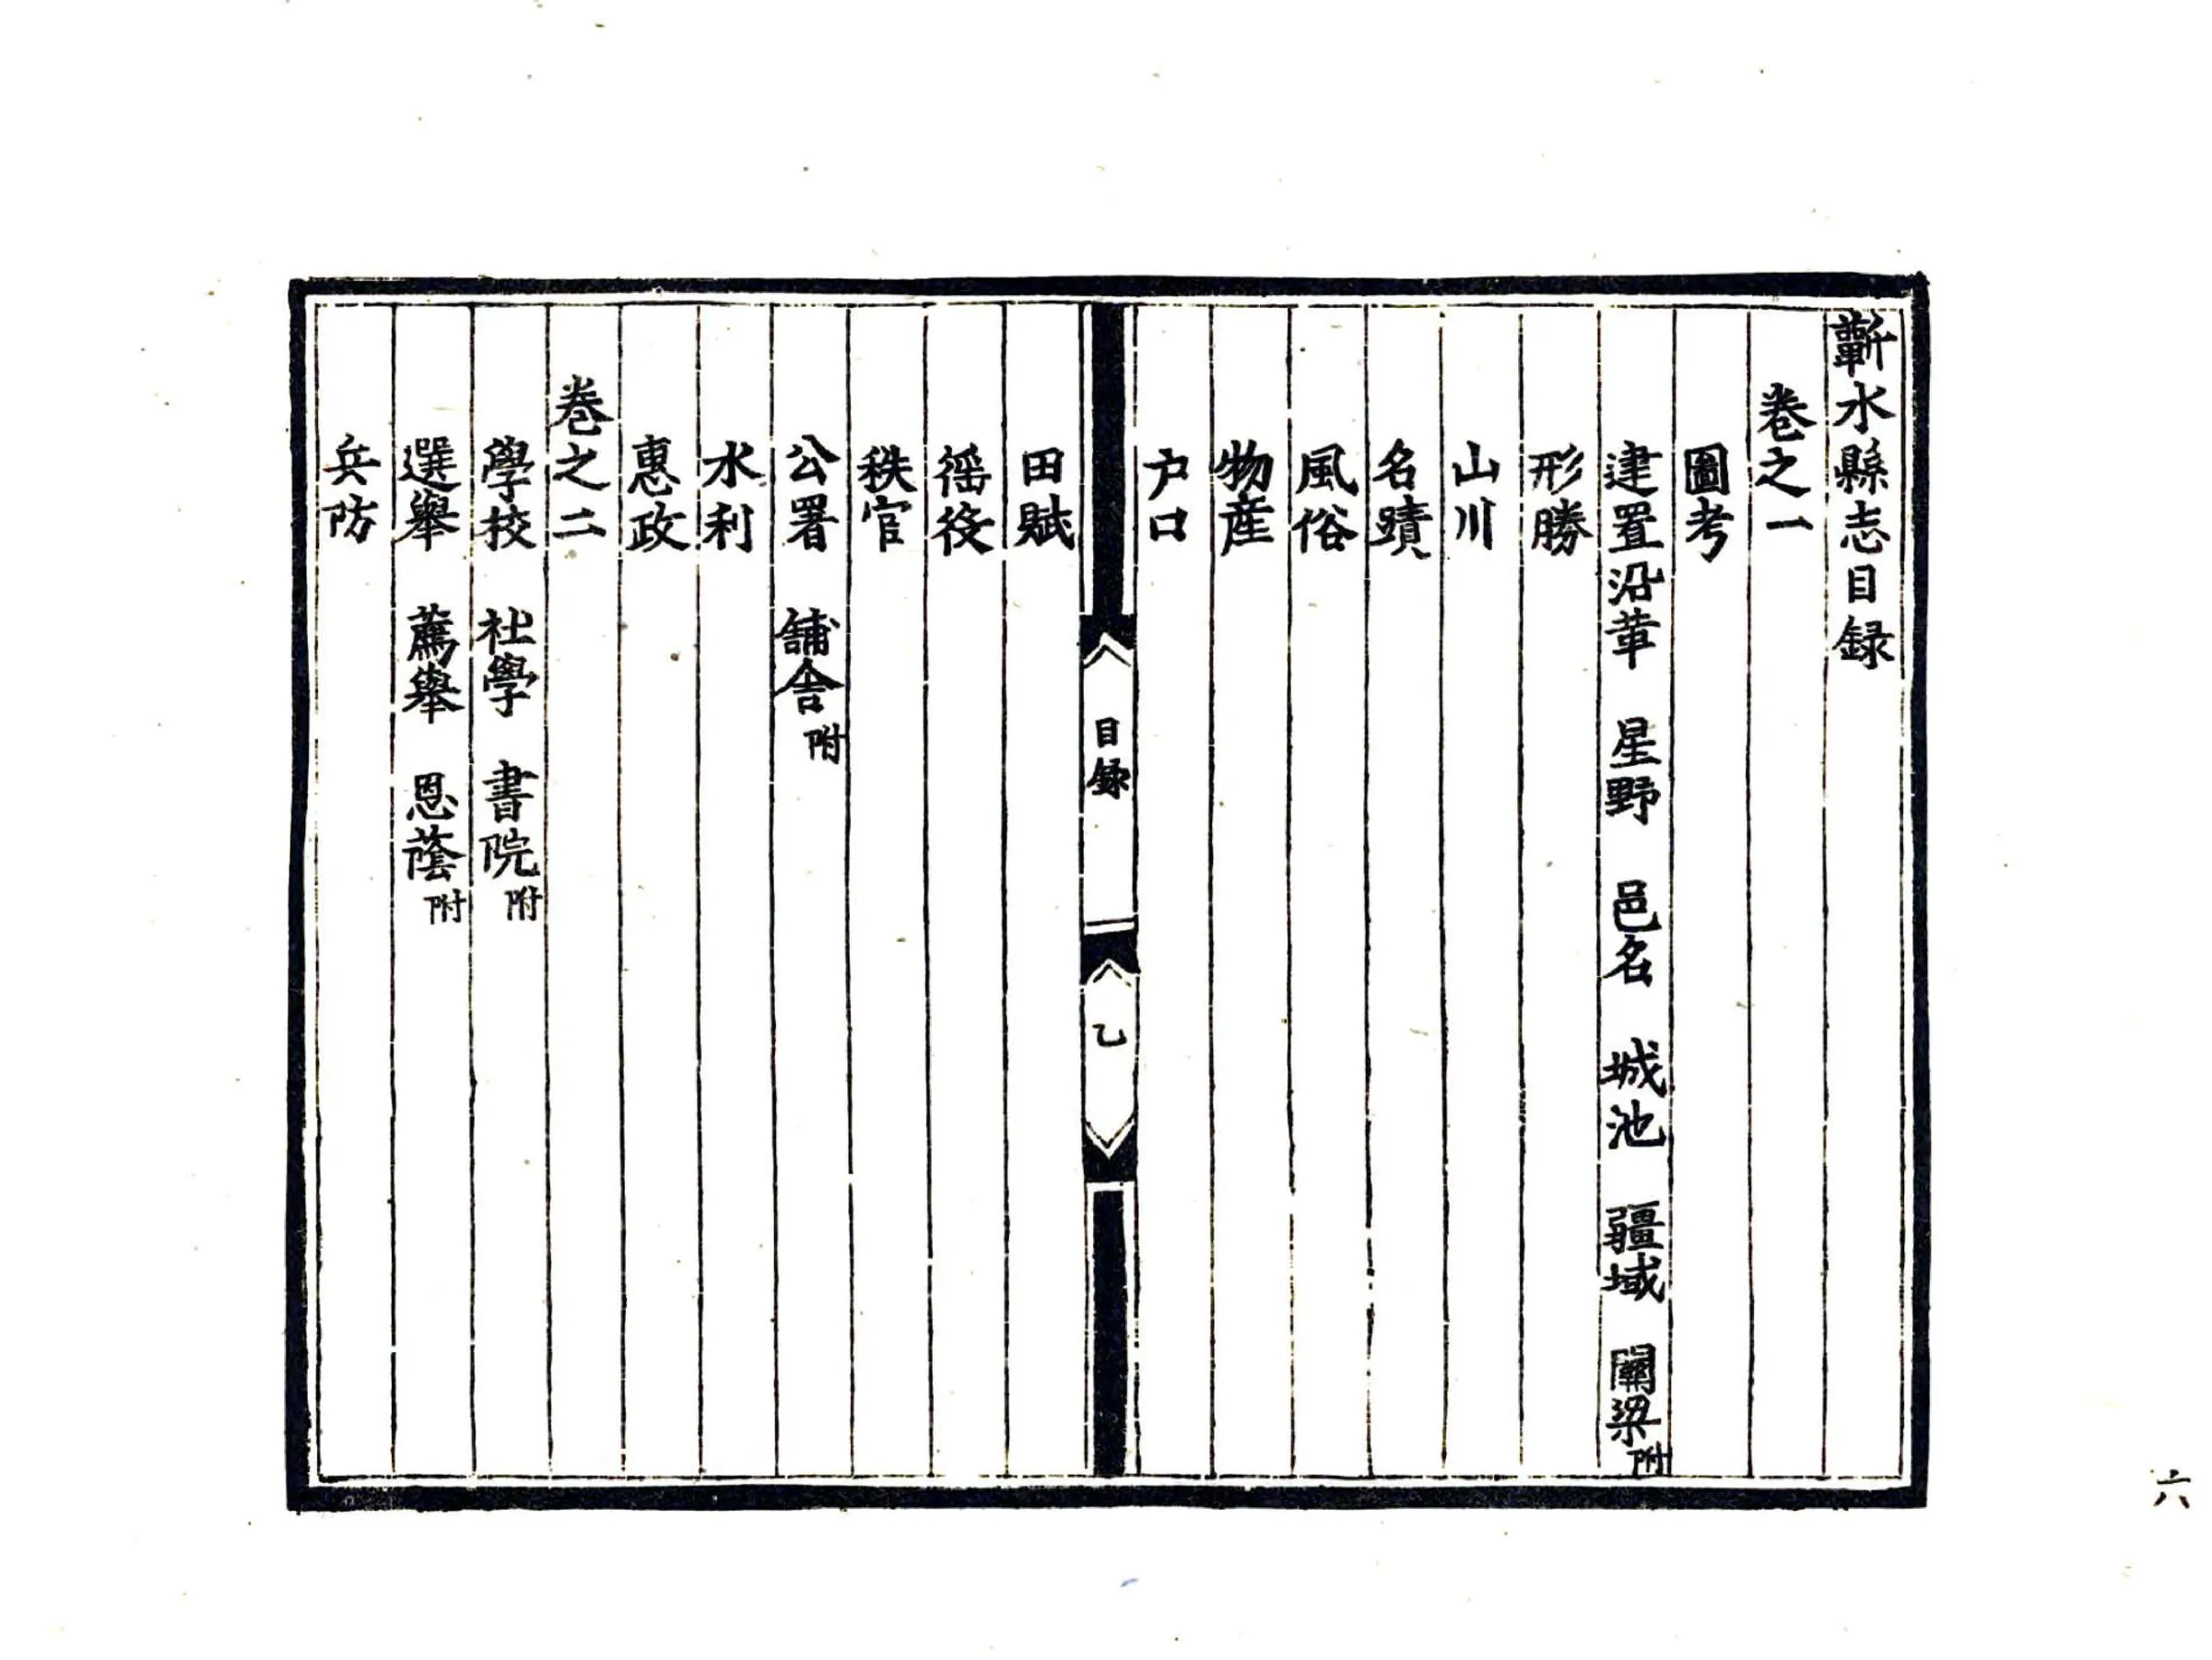 蘄水縣志目録
卷之一
圖考
建置沿革 星野 邑名 城池 疆域 關梁附
形勝
山川
名蹟
風俗
物產
户口
目録
乙
田賦
徭役
秩官
公署 舖舍附
水利
惠政
卷之二
學校 社學 書院附
選舉 薦舉 恩蔭附
兵防
六